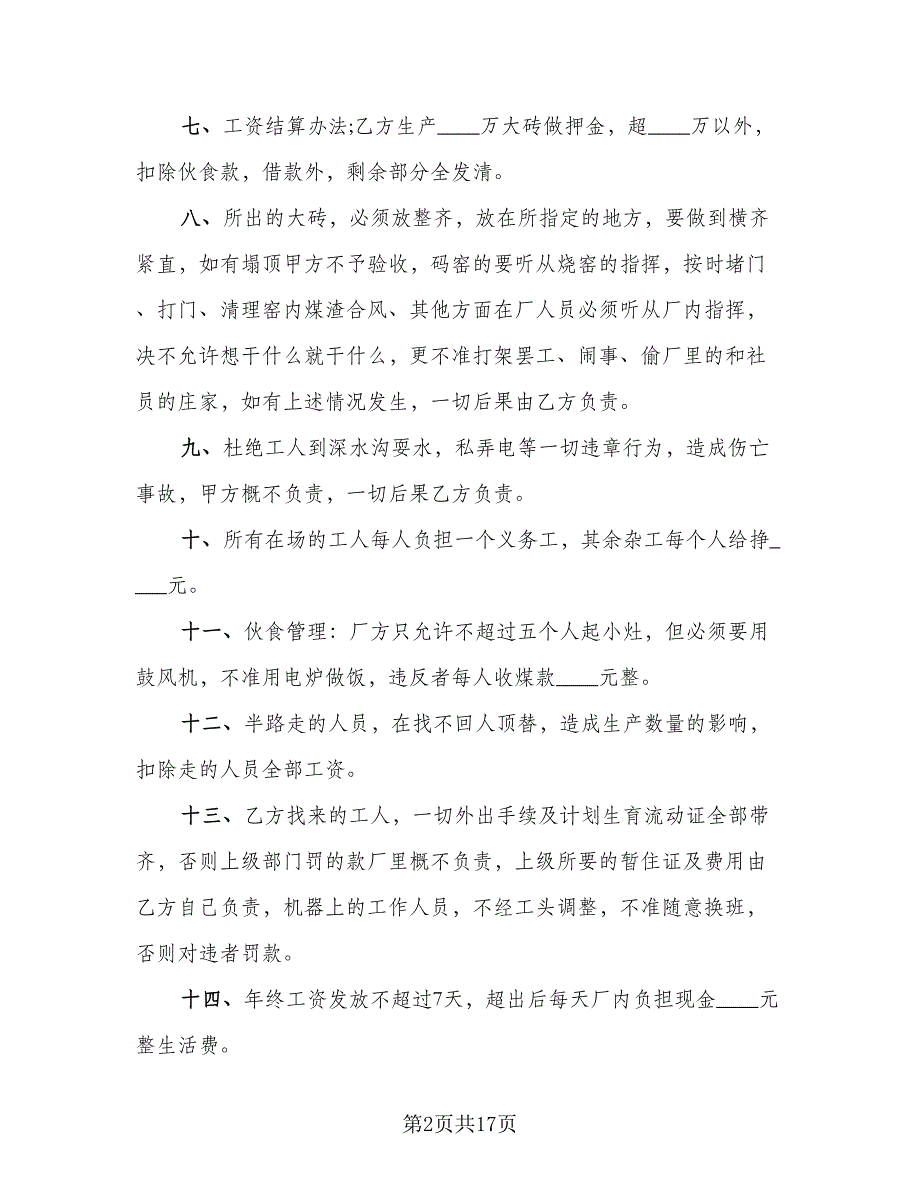 七、工资结算办法;乙方生产____万大砖做押金，超____万以外，
扣除伙食款，借款外，剩余部分全发清。
八、所出的大砖，必须放整齐，放在所指定的地方，要做到横齐
紧直，如有塌顶甲方不予验收，码窑的要听从烧窑的指挥，按时堵门
、打门、清理窑内煤渣合风、其他方面在厂人员必须听从厂内指挥，
决不允许想干什么就干什么，更不准打架罢工、闹事、偷厂里的和社
员的庄家，如有上述情况发生，一切后果由乙方负责。
九、杜绝工人到深水沟耍水，私弄电等一切违章行为，造成伤亡
事故，甲方概不负责，一切后果乙方负责。
十、所有在场的工人每人负担一个义务工，其余杂工每个人给挣_
___元。
十一、伙食管理：厂方只允许不超过五个人起小灶，但必须要用
鼓风机，不准用电炉做饭，违反者每人收煤款____元整。
十二、半路走的人员，在找不回人顶替，造成生产数量的影响，
扣除走的人员全部工资。
十三、乙方找来的工人，一切外出手续及计划生育流动证全部带
齐，否则上级部门罚的款厂里概不负责，上级所要的暂住证及费用由
乙方自己负责，机器上的工作人员，不经工头调整，不准随意换班，
否则对违者罚款。
十四、年终工资发放不超过7天，超出后每天厂内负担现金____元
整生活费。
第2页共17页